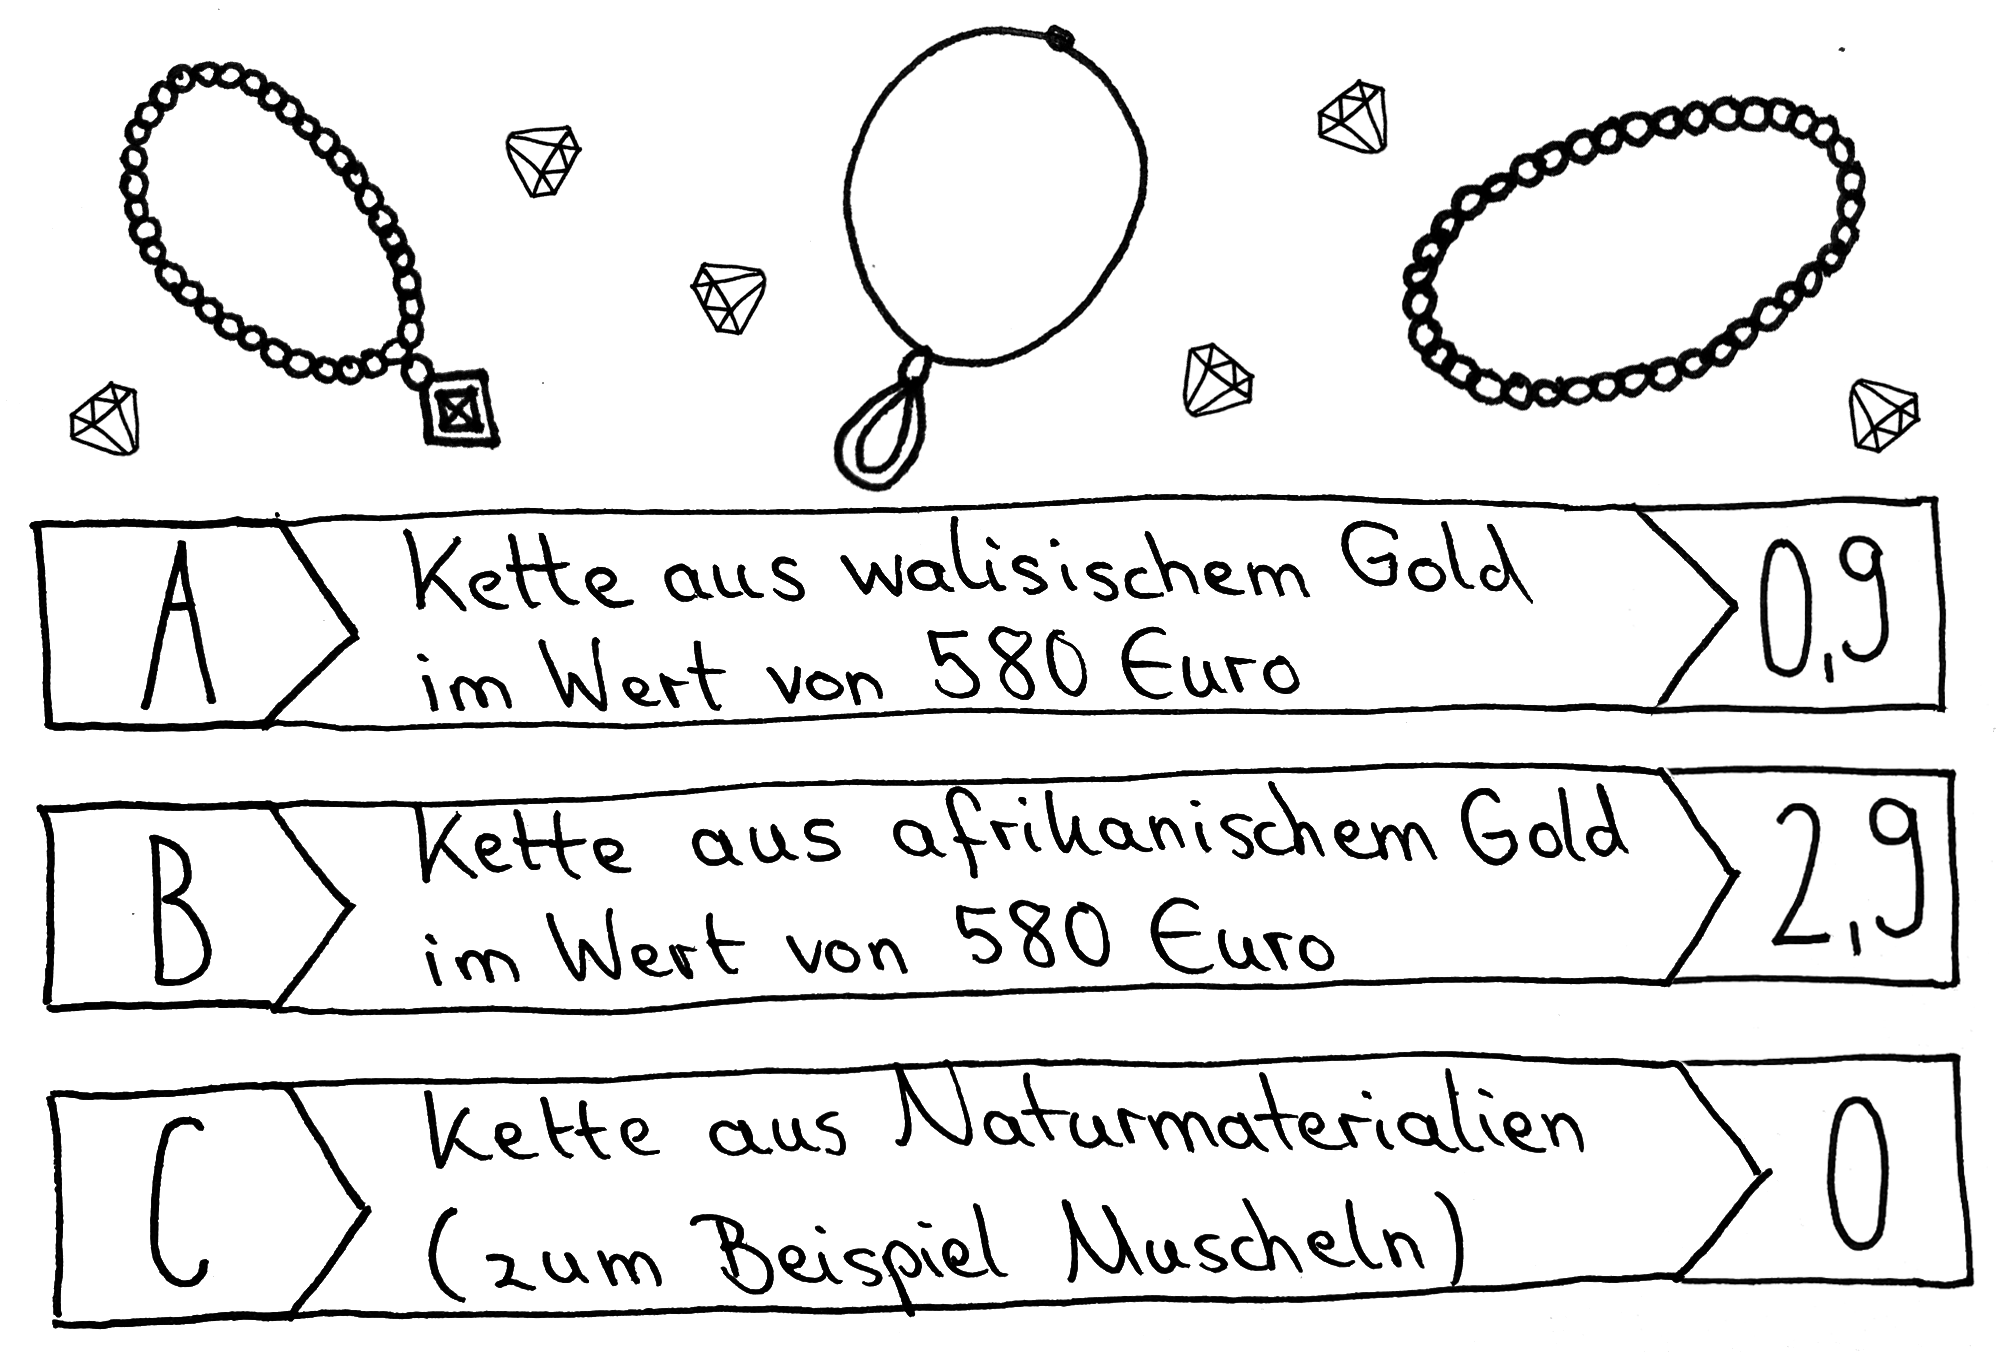 A
Kette aus walisischem Gold
im Wert von 580 Euro
0,9
B
Kette aus afrikanischem Gold
im Wert von 580 Euro
2,9
C
Kette aus Naturmaterialien
(zum Beispiel Muscheln)
0